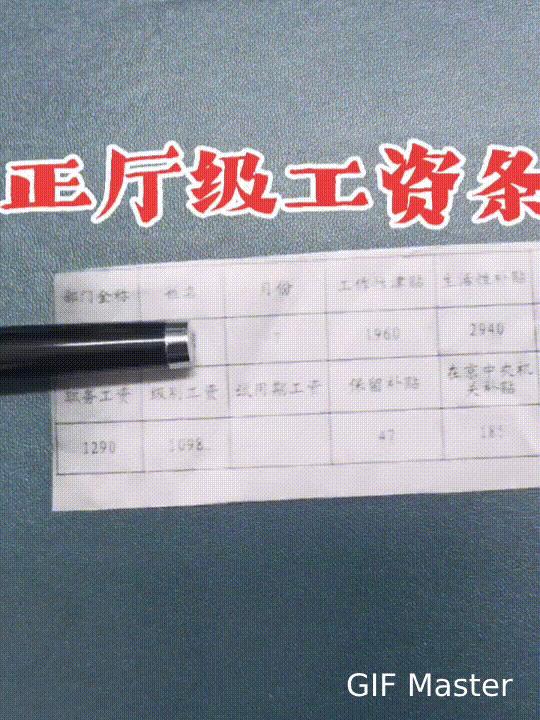 正厅级工资条
部门全称 姓名 月份 工作性津贴 生活性补贴
1960 2940
职务工资 级别工资 试用期工资 保留补贴 在京中央机关补贴
1290 1098 47 185
GIF Master